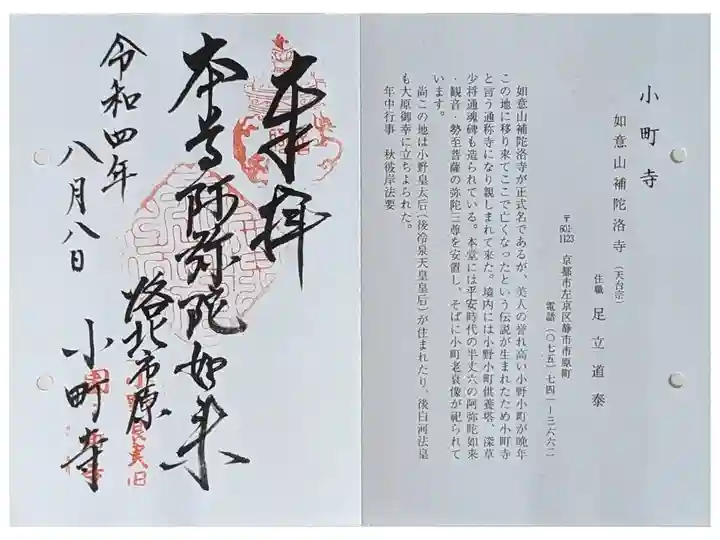 小町寺
如意山補陀洛寺（天台宗）
住職 足立道泰
〒601-1123 京都市左京区静市市原町
電話（〇七五）七四一ー三六六二
如意山補陀洛寺が正式名であるが、美人の誉れ高い小野小町が晩年
この地に移り来てここで亡くなったという伝説が生まれたため小町寺
と言う通称寺になり親しまれて来た。境内には小野小町供養塔、深草
少将通魂碑も造られている。本堂には平安時代の半丈六の阿弥陀如来
・観音・勢至菩薩の弥陀三尊を安置し、そばに小町老衰像が祀られて
います。
尚この地は小野皇太后（後冷泉天皇皇后）が住まれたり、後白河法皇
も大原御幸に立ちよられた。
年中行事 秋彼岸法要
奉拝
本尊阿弥陀如来
洛北市原
小町寺
令和四年
八月八日